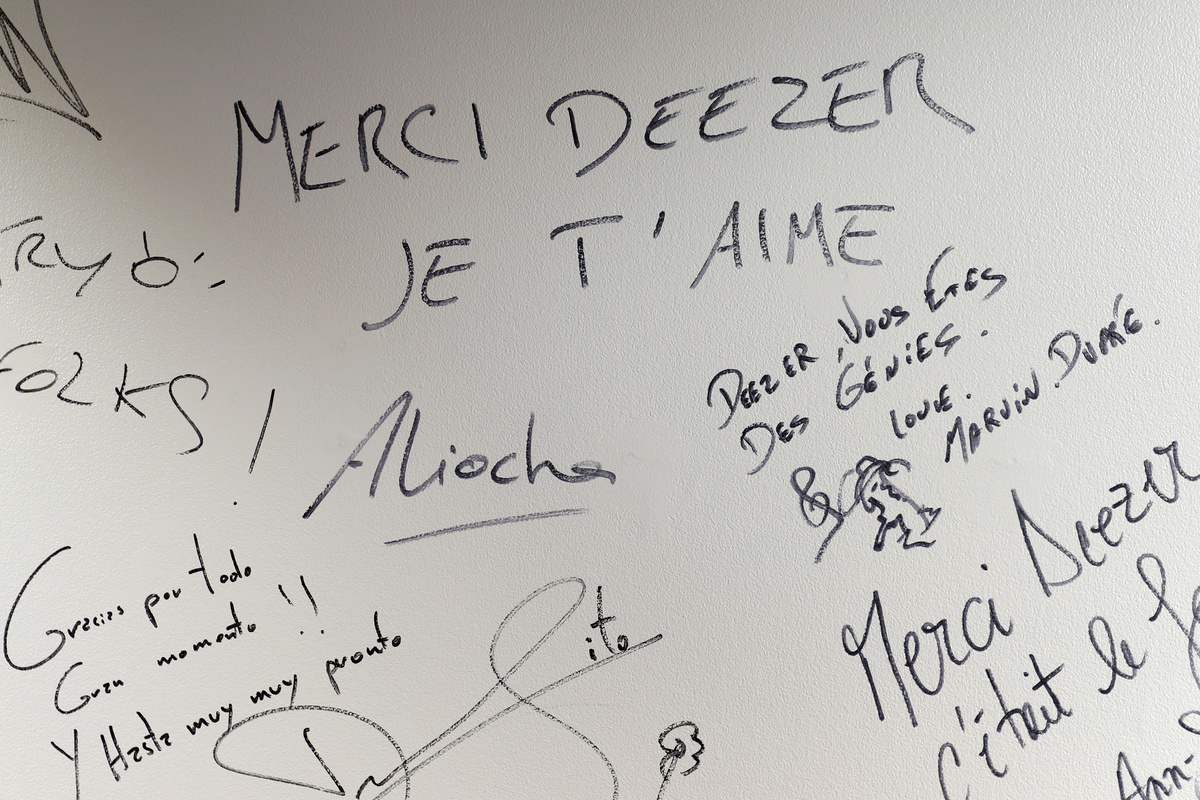 MERCI DEEZER
JE T'AIME
Aliocha
FOLKS !
DEEZER, VOUS ÊTES
DES GÉNIES.
LOVE.
MARVIN. DUPRÉ.
Gracias por todo
Gran momento !!
Y Hasta muy muy pronto
Merci Deezer
C'était le
Ann-